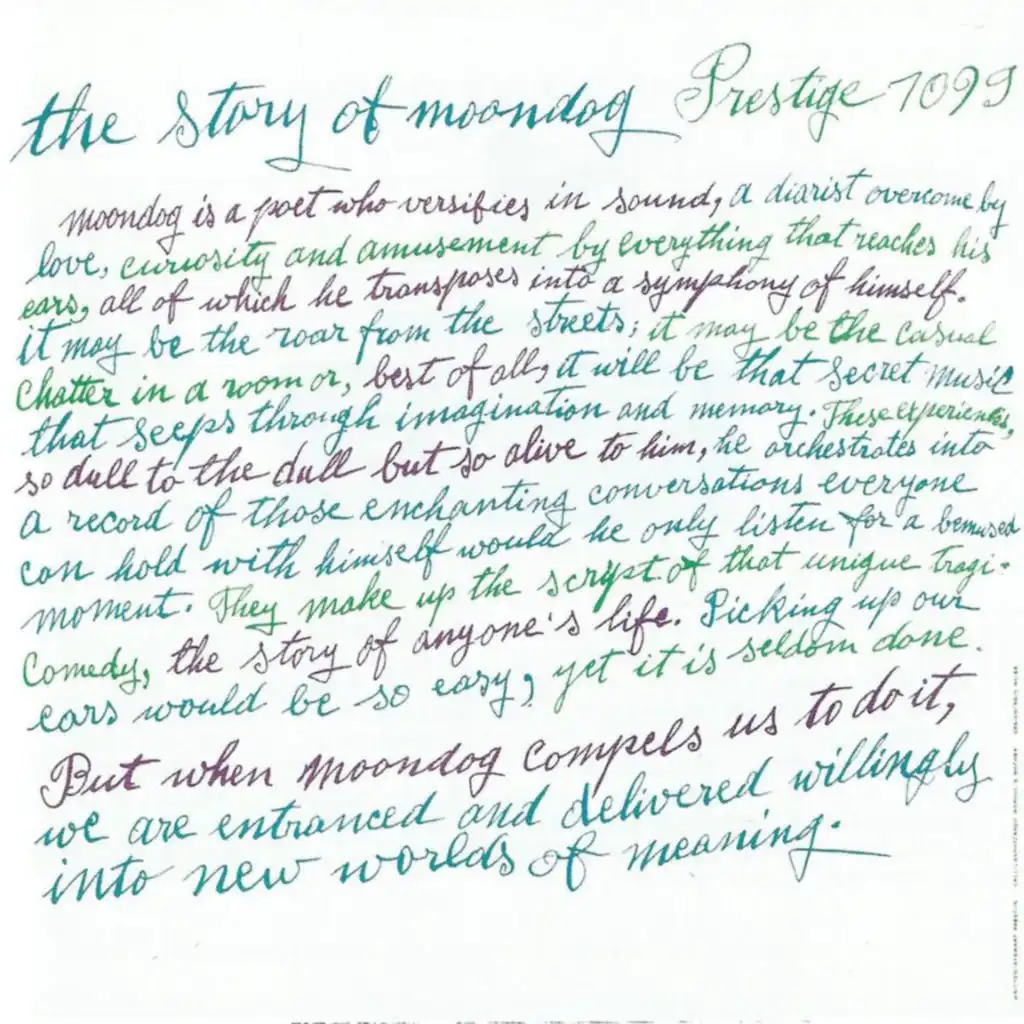 the story of moondog Prestige 7099
moondog is a poet who versifies in sound, a diarist overcome by
love, curiosity and amusement by everything that reaches his
ears, all of which he transposes into a symphony of himself.
it may be the roar from the streets; it may be the casual
chatter in a room or, best of all, it will be that secret music
that seeps through imagination and memory. These experiences,
so dull to the dull but so alive to him, he orchestrates into
a record of those enchanting conversations everyone
can hold with himself would he only listen for a bemused
moment. They make up the script of that unique tragi-
comedy, the story of anyone's life. Picking up our
ears would be so easy, yet it is seldom done.
But when Moondog compels us to do it,
we are entranced and delivered willingly
into new worlds of meaning.